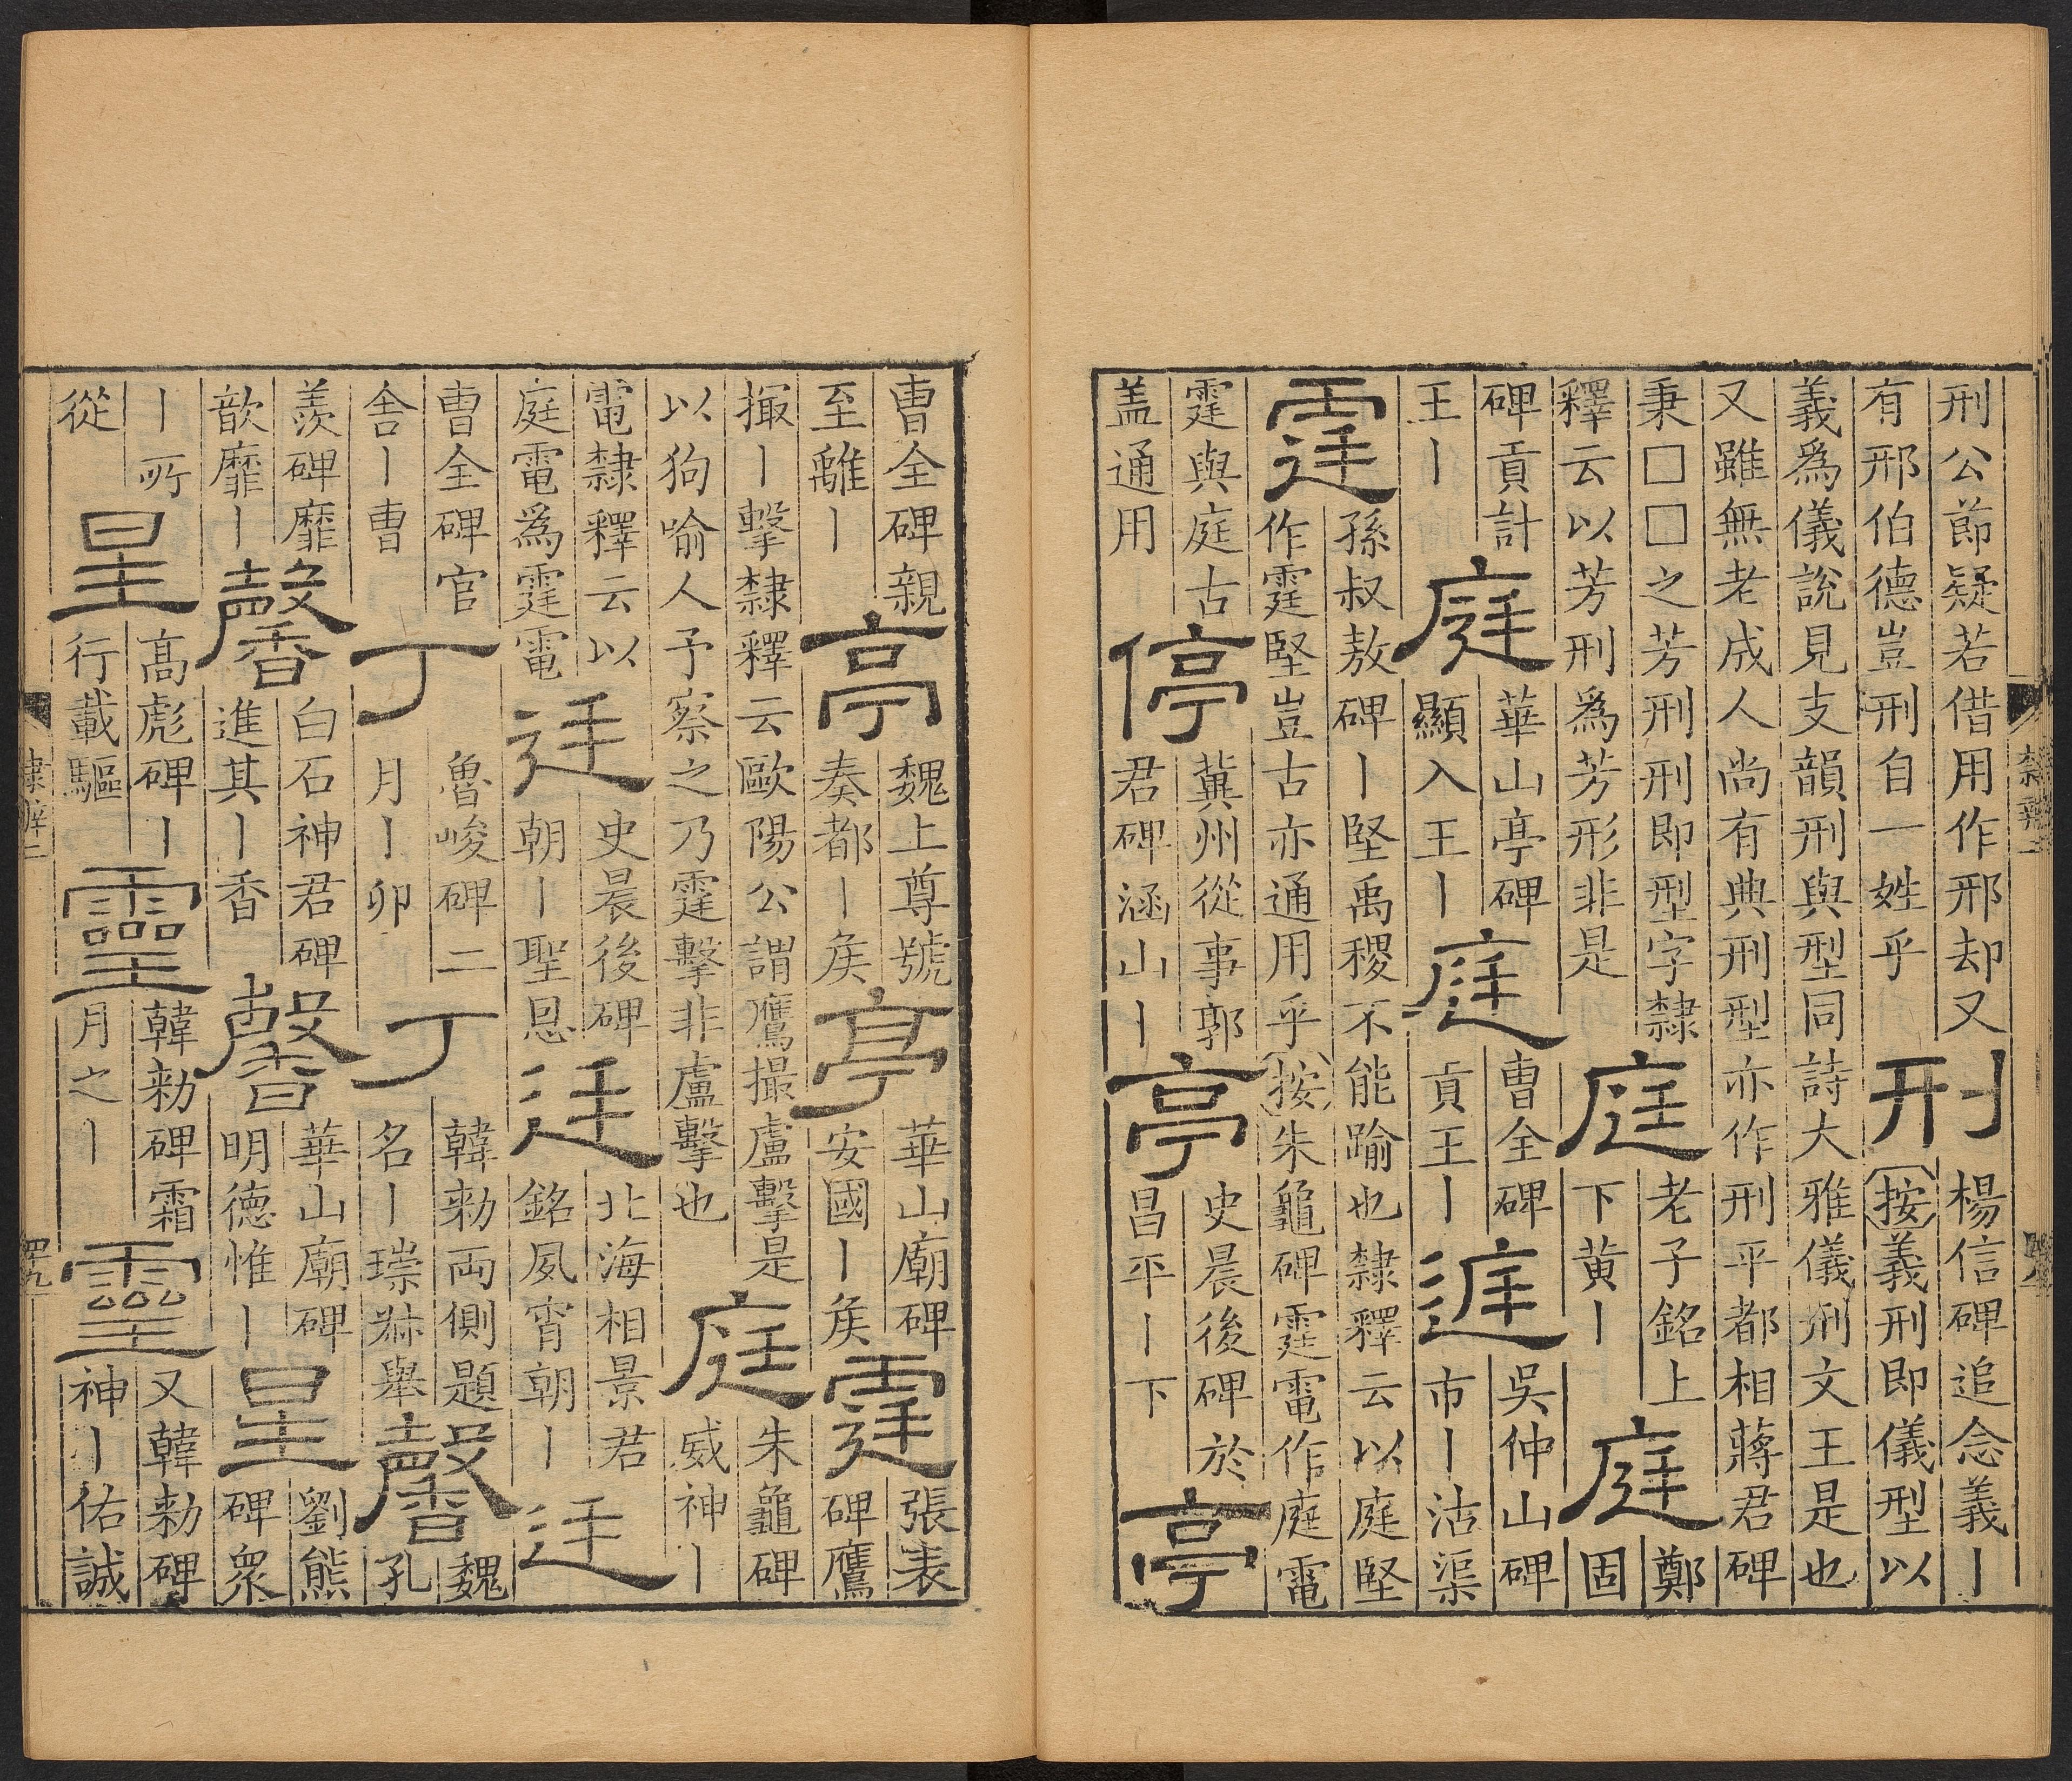 刑公節疑若借用作邢却又
有邢伯德豈刑自一姓乎
刑
楊信碑追念義丨
按義刑即儀型以
義爲儀說見支韻刑與型同詩大雅儀刑文王是也
又雖無老成人尚有典刑型亦作刑平都相蔣君碑
秉□□之芳刑刑即型字隸
釋云以芳刑爲芳形非是
庭
老子銘上
下黄丨
庭
鄭
固
碑貢計
王丨
庭
華山亭碑
顯入王丨
庭
曹全碑
貢王丨
遳
吳仲山碑
市丨沽渠
霆
孫叔敖碑丨堅禹稷不能踰也隸釋云以庭堅
作霆堅豈古亦通用乎按朱龜碑霆電作庭電
霆與庭古
盖通用
停
冀州從事郭
君碑涵山丨
亭
史晨後碑於
昌平丨下
亭
曹全碑親
至離丨
亭
魏上尊號
奏都丨矦
亭
華山廟碑
安國丨矦
霆
張表
碑鷹
撮丨擊隸釋云歐陽公謂鷹撮盧擊是
以狗喻人予察之乃霆擊非盧擊也
庭
朱龜碑
威神丨
電隸釋云以
庭電爲霆電
廷
史晨後碑
朝丨聖恩
廷
北海相景君
銘夙宵朝丨
廷
曹全碑官
舍丨曹
丁
魯峻碑二
月丨卯
丁
韓勑両側題
名丨琮叔舉
馨
魏
孔
羨碑靡
歆靡丨
馨
白石神君碑
進其丨香
馨
華山廟碑
明德惟丨
星
劉熊
碑衆
丨所
從
星
高彪碑丨
行載驅
靈
韓勑碑霜
月之丨
靈
又韓勑碑
神丨佑誠